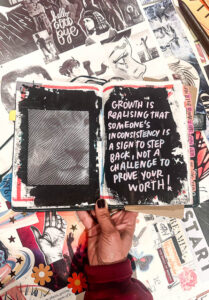 hello
GOOD
BYE
GROWTH IS
REALISING THAT
SOMEONE'S
INCONSISTENCY IS
A SIGN TO STEP
BACK, NOT A
CHALLENGE TO
PROVE YOUR
WORTH!
STAR